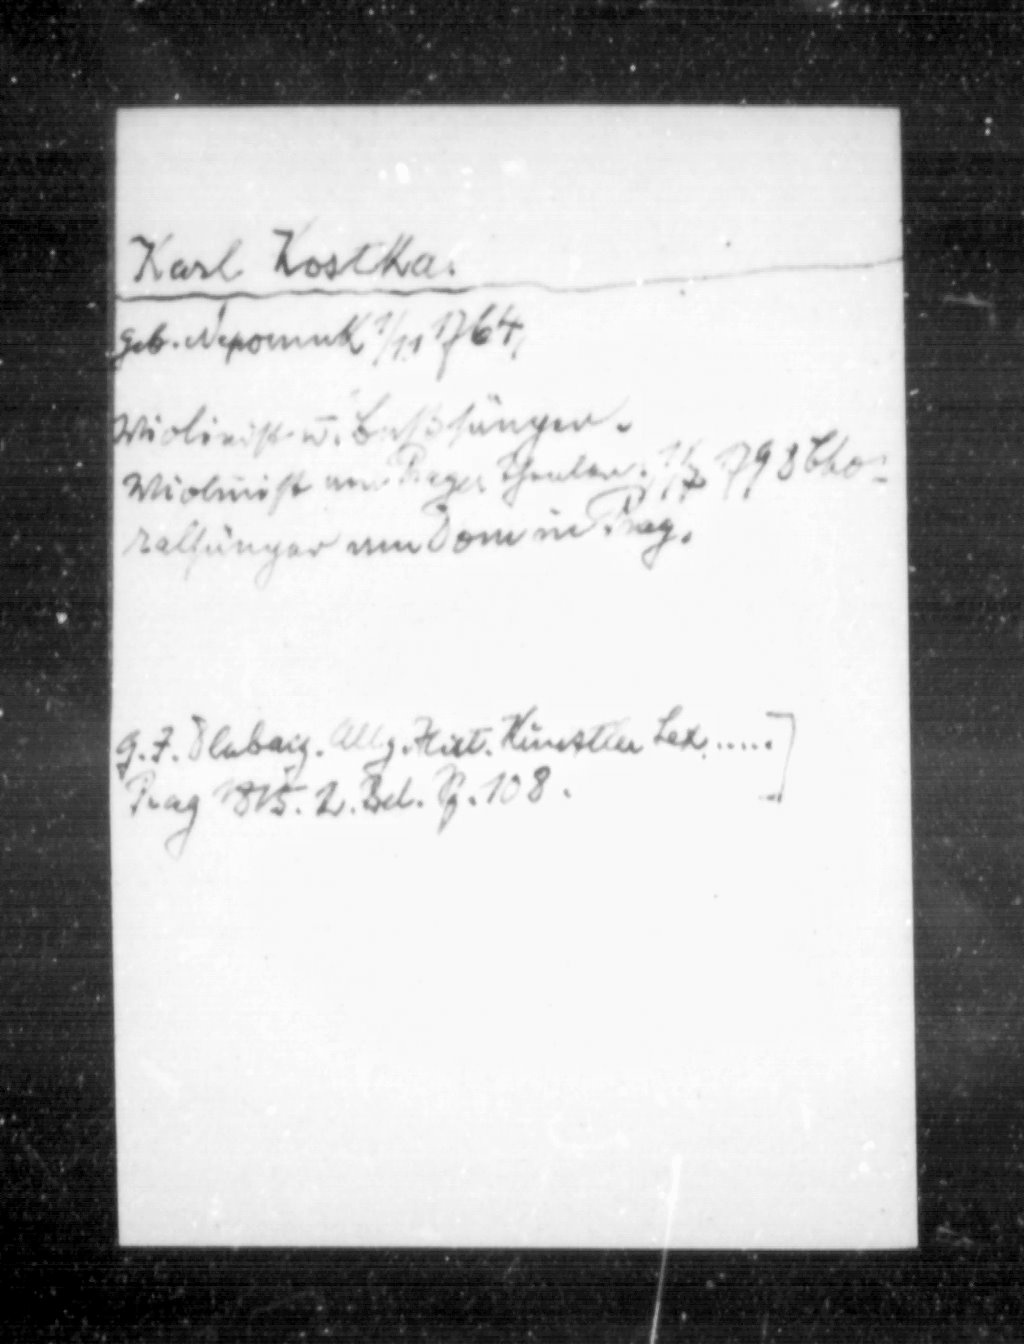 Karl Kostka.
geb. Nepomuk 1/11 1764,
Violinist u. Baßsänger.
Violinist am Prager Theater. 1/7 1798 Cho-
ralsänger am Dom in Prag.
G. J. Dlabacž. Allg. Hist. Künstler Lex.....]
Prag 1815. 2. Bd. Sp. 108.